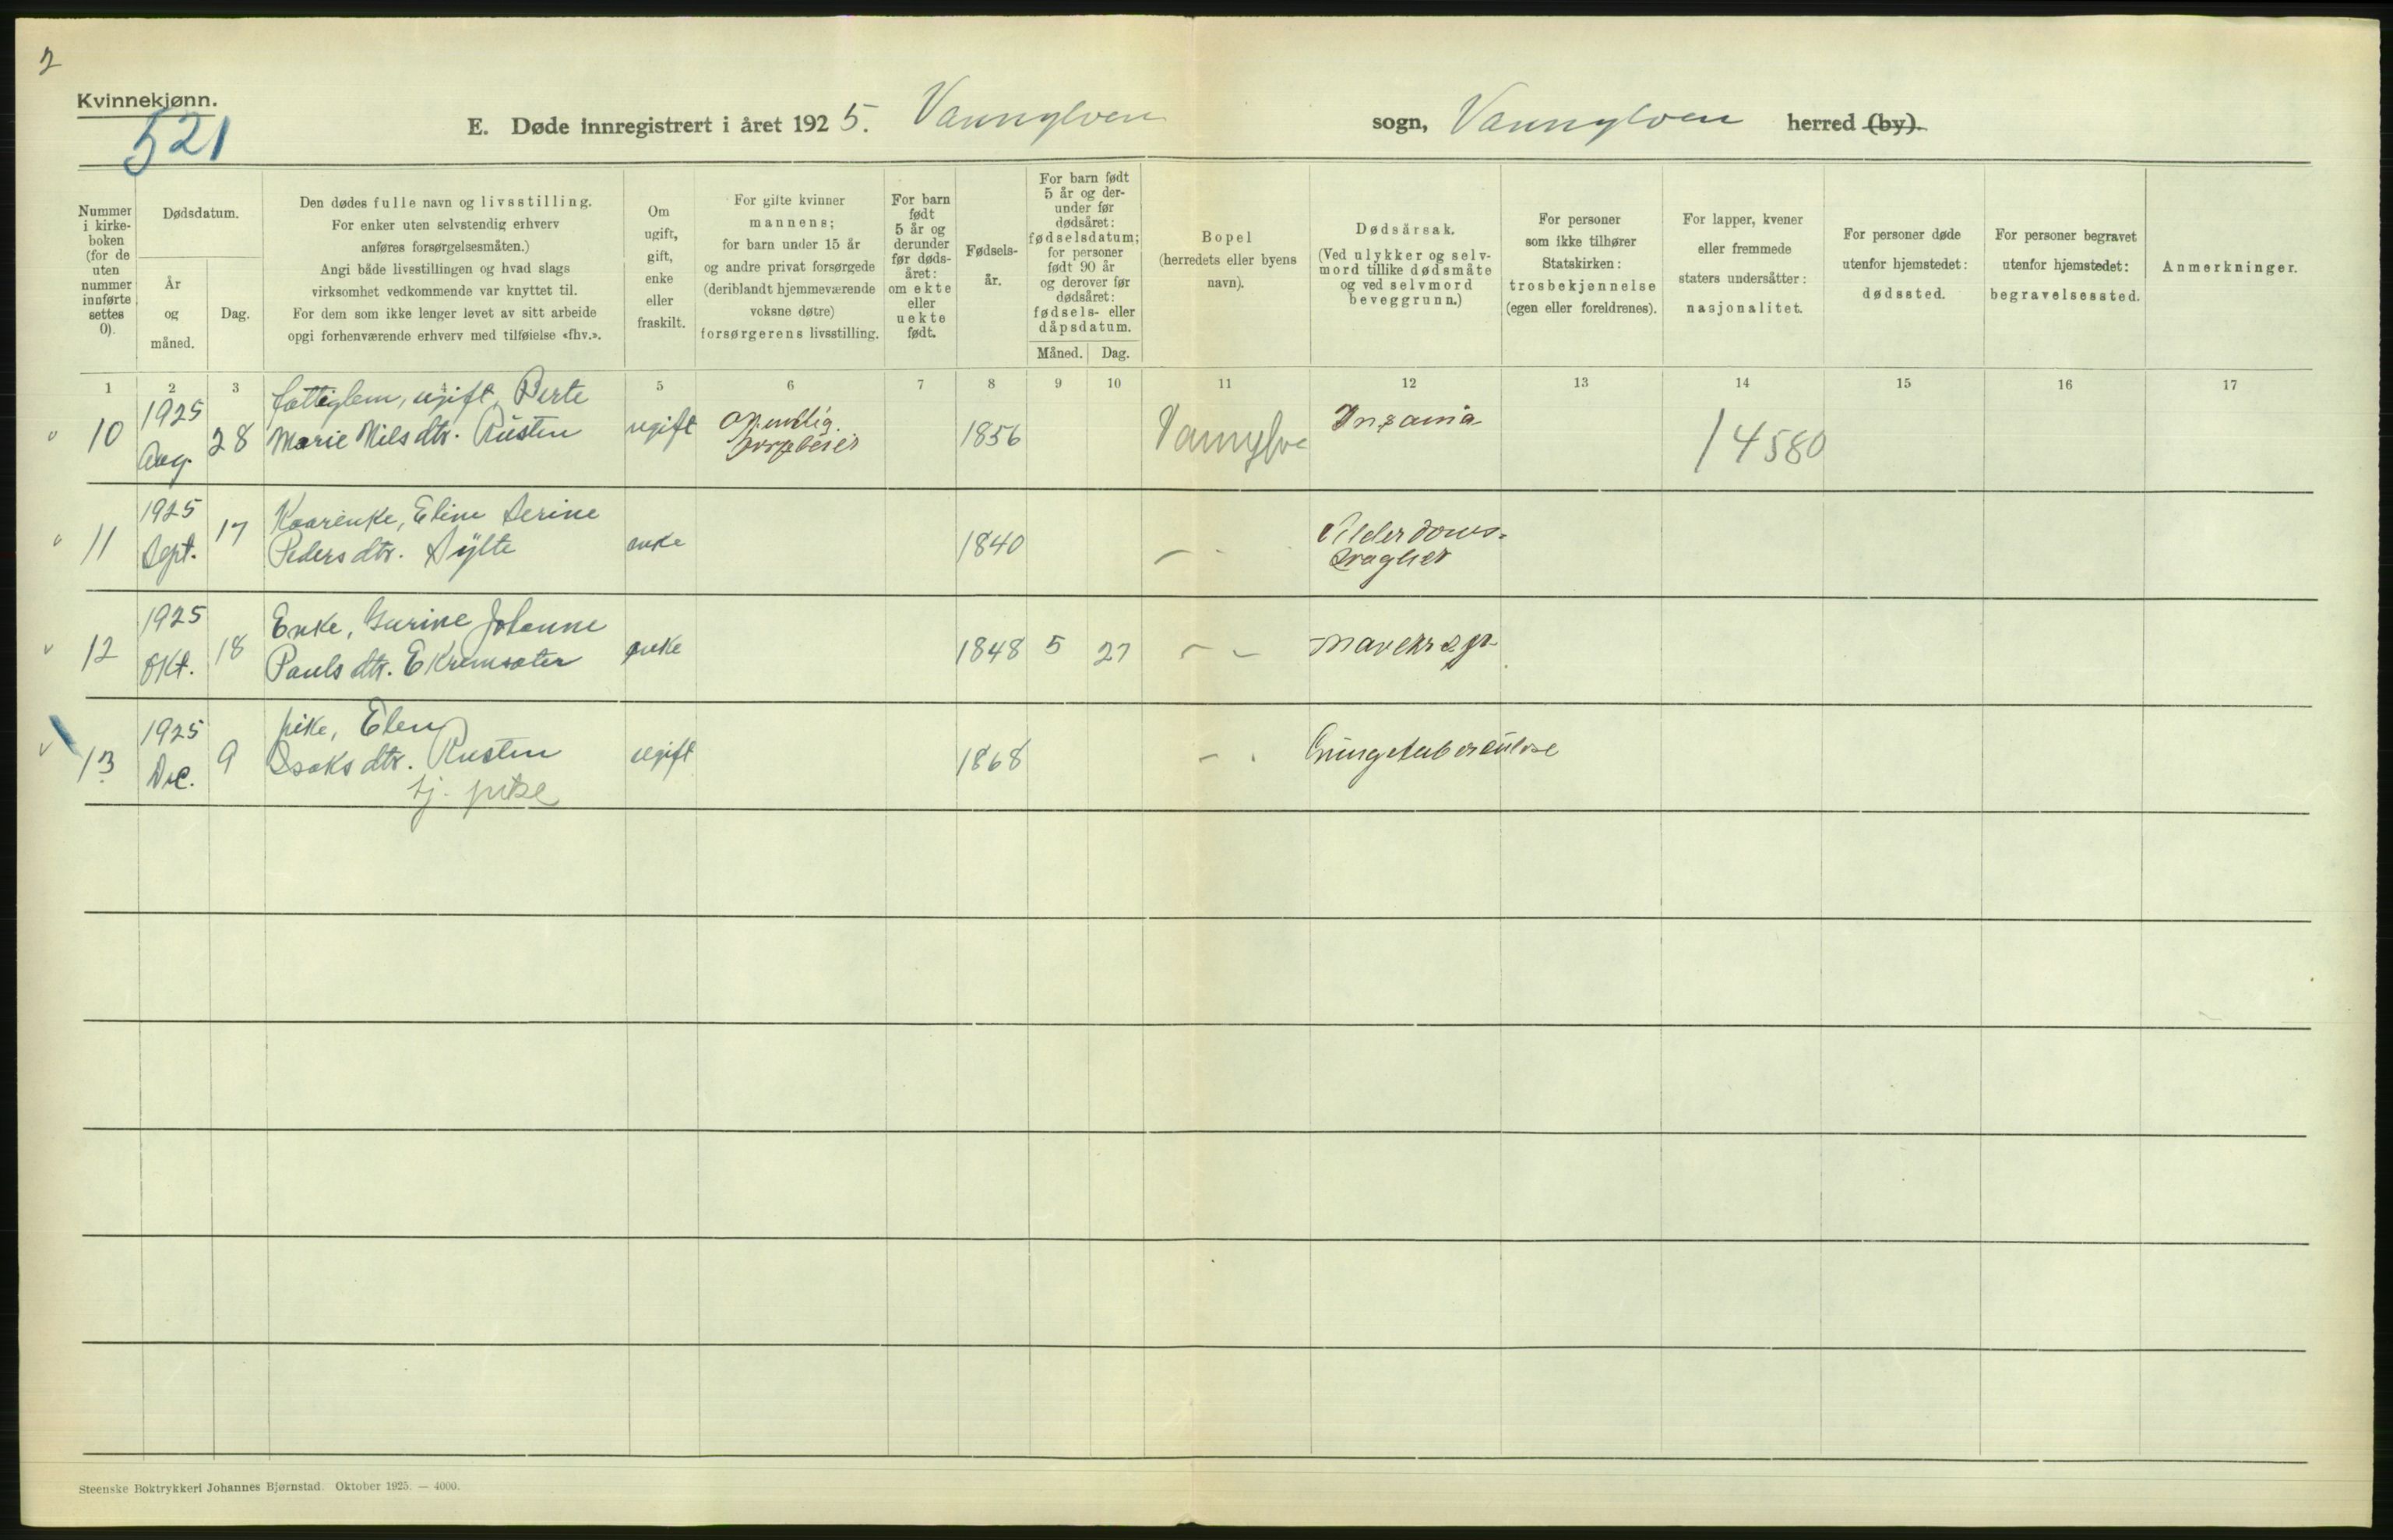 2
Kvinnekjønn.
521
E. Døde innregistrert i året 1925. Vannylven sogn, Vannylven herred (by).
Nummer i kirke-boken (for de uten nummer innførte settes 0).
Dødsdatum.
År og måned.
Dag.
Den dødes fulle navn og livsstilling.
For enker uten selvstendig erhverv
anføres forsørgelsesmåten.)
Angi både livsstillingen og hvad slags
virksomhet vedkommende var knyttet til.
For dem som ikke lenger levet av sitt arbeide
opgi forhenværende erhverv med tilføielse «fhv.».
Om ugift, gift, enke eller fraskilt.
For gifte kvinner
mannens;
for barn under 15 år
og andre privat forsørgede
(deriblandt hjemmeværende
voksne døtre)
forsørgerens livsstilling.
For barn født 5 år og derunder før døds-året: om ekte eller uekte født.
Fødsels-år.
For barn født
5 år og der-
under før
dødsåret:
fødselsdatum;
for personer
født 90 år
og derover før
dødsåret:
fødsels- eller
dåpsdatum.
Måned. Dag.
Bopel
(herredets eller byens
navn).
Dødsårsak.
(Ved ulykker og selv-
mord tillike dødsmåte
og ved selvmord
beveggrunn.)
For personer
som ikke tilhører
Statskirken:
trosbekjennelse
(egen eller foreldrenes).
For lapper, kvener
eller fremmede
staters undersåtter:
nasjonalitet.
For personer døde
utenfor hjemstedet:
dødssted.
For personer begravet
utenfor hjemstedet:
begravelsessted.
Anmerkninger.
1 2 3 4 5 6 7 8 9 10 11 12 13 14 15 16 17
10 1925 Aug. 28 fattiglem, ugift, Berte
Marie Nilsdtr. Rusten ugift offentlig forsørget 1856 Vannylve Insania 14580
11 1925 Sept. 17 Kaarenke, Eline Serine
Pedersdtr. Sylte enke 1840 - - Alderdoms-
svaghet
12 1925 Okt. 18 Enke, Gurine Johanne
Paulsdtr. Ekremsæter enke 1848 5 27 - - Mavekr
13 1925 Dec. 9 pike, Elen
Isaksdtr. Rusten ugift 1868 - - Lungetuberculose
tj. pike
Steenske Boktrykkeri Johannes Bjørnstad. Oktober 1925. — 4000.